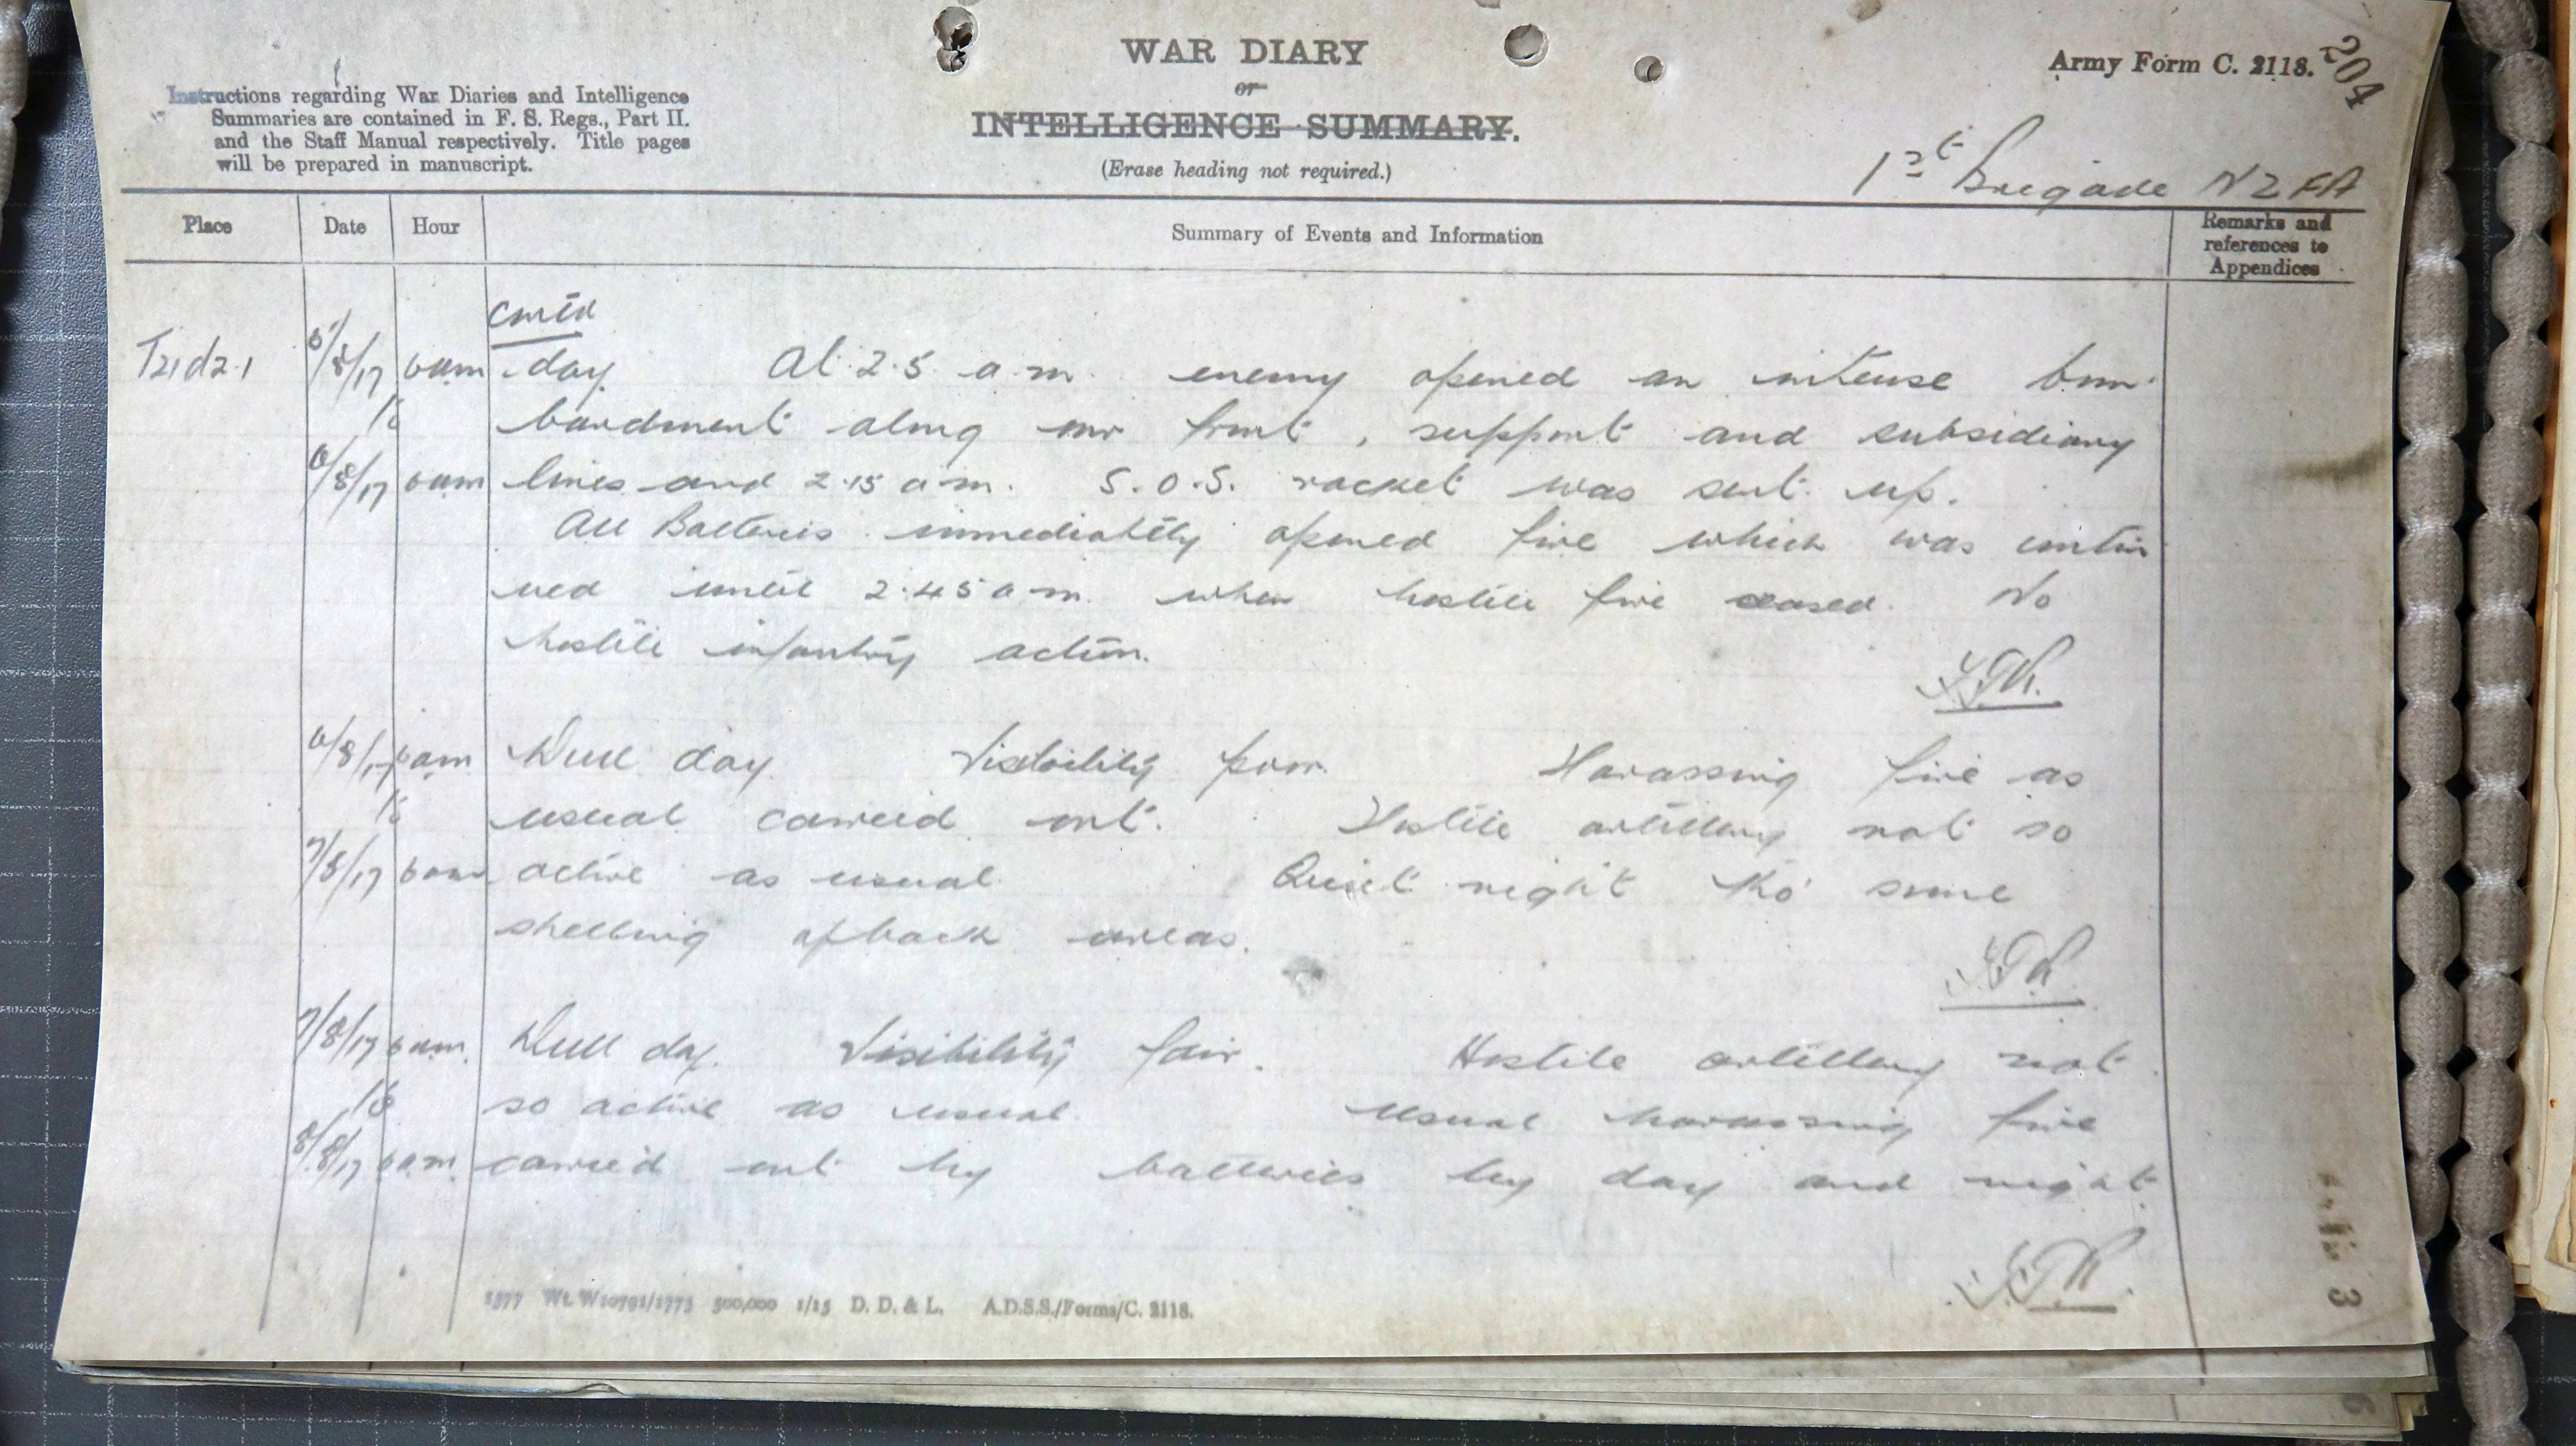 WAR DIARY
or
INTELLIGENCE SUMMARY.
(Erase heading not required.)
Army Form C. 2118.
204
Instructions regarding War Diaries and Intelligence
Summaries are contained in F. S. Regs., Part II.
and the Staff Manual respectively. Title pages
will be prepared in manuscript.
1st Brigade NZFA
Place Date Hour Summary of Events and Information Remarks and references to Appendices
contd
T21d2.1 5/8/17 6am day At 2.5. a.m. enemy opened an intense bom-
to bardment along our front, support and subsidiary
6/8/17 6am lines and 2.15 a.m. S.O.S. rocket was sent up.
All Batteries immediately opened fire which was contin
ued until 2.45 a.m. when hostile fire ceased. No
hostile infantry action.
6/8/17 6am Dull day. Visibility poor. Harassing fire as
to usual carried out. Hostile artillery not so
7/8/17 6am active as usual. Quiet night tho' some
shelling of back areas.
7/8/17 6am. Dull day. Visibility fair. Hostile artillery not
to so active as usual usual harassing fire
8/8/17 6am. carried out by batteries by day and night.
1577 Wt. W10791/1773 500,000 1/15 D. D. & L. A.D.S.S./Forms/C. 2118.